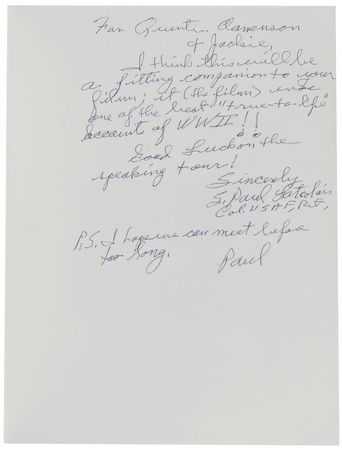 For Quentin Aanenson
& Jackie,
I think this will be
a fitting companion to your
film; it (the film) was
one of the best "true-to-life"
accounts of WWII!!
Good Luck on the
speaking tour!
Sincerely
S. Paul
Col. USAF, Rt.
P.S. I hope we can meet before
too long.
Paul